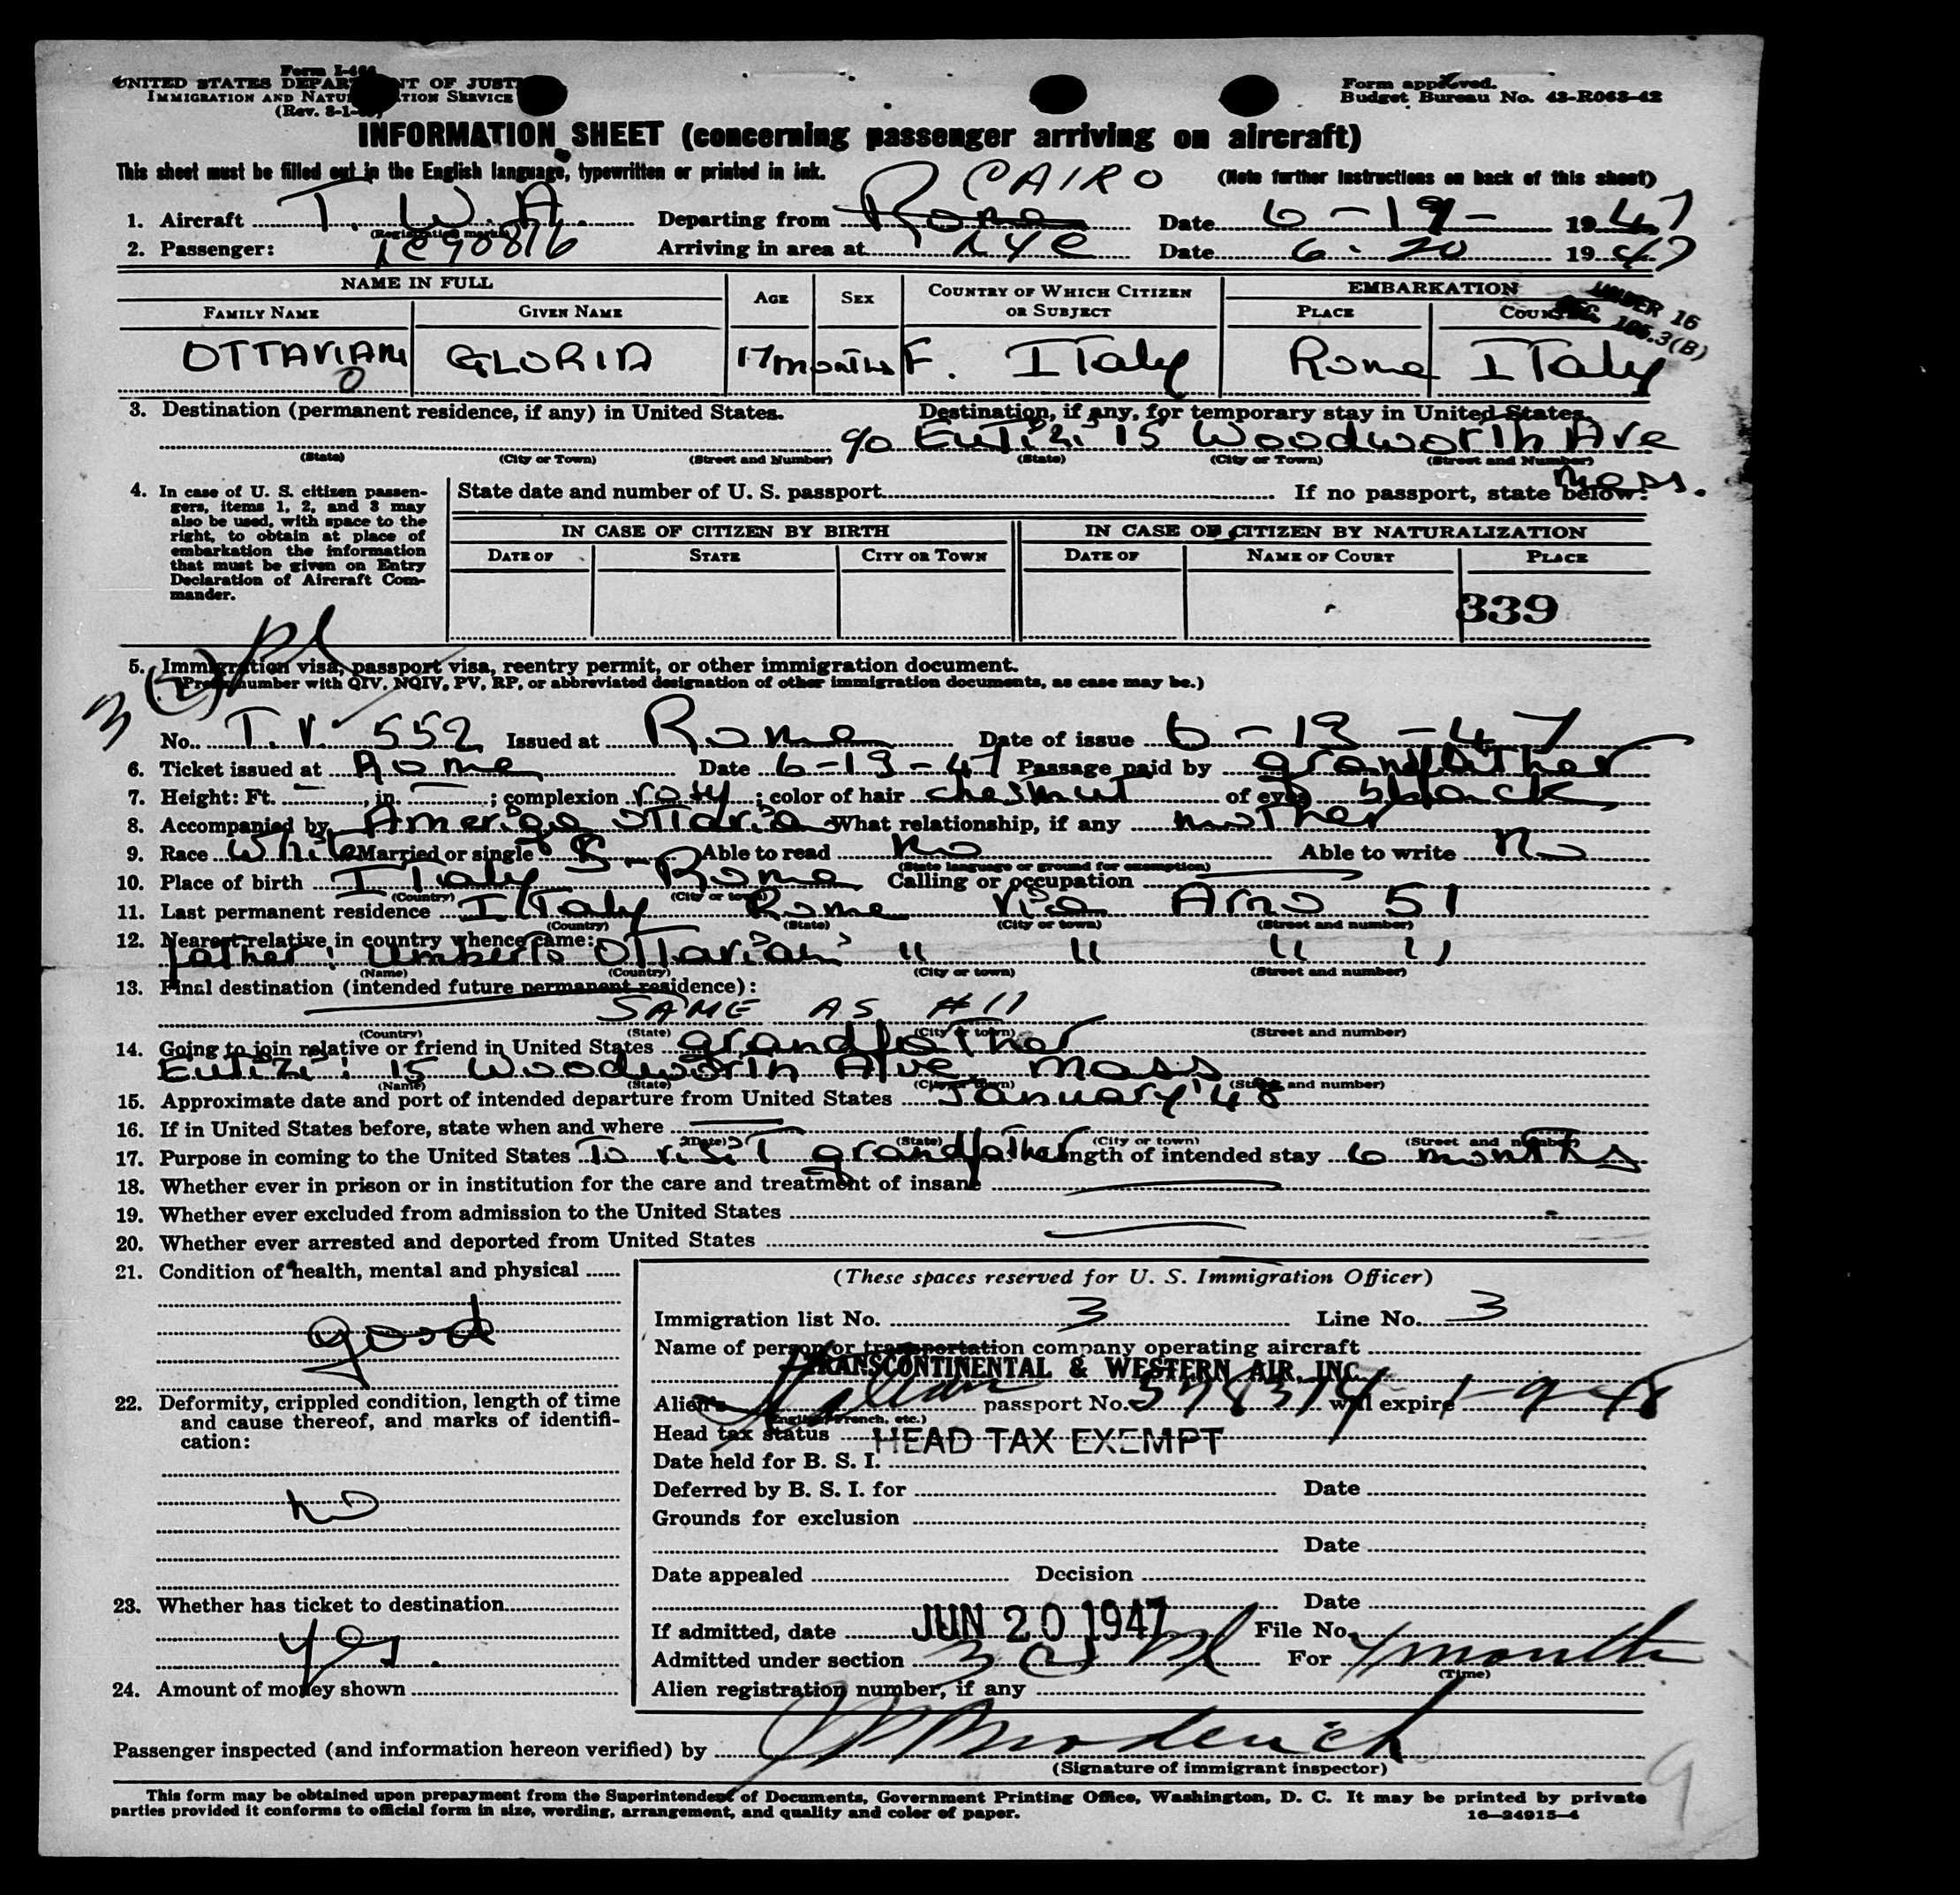 Form I-466
UNITED STATES DEPARTMENT OF JUSTICE
IMMIGRATION AND NATURALIZATION SERVICE
(Rev. 8-1-
Form approved.
Budget Bureau No. 43-R063-42
INFORMATION SHEET (concerning passenger arriving on aircraft)
This sheet must be filled out in the English language, typewritten or printed in ink. (Note further instructions on back of this sheet)
CAIRO
1. Aircraft T. W. A. Departing from Rome Date 6-19- 1947
(Registration marks)
2. Passenger: Arriving in area at nyc Date 6-20 1947
NAME IN FULL AGE SEX COUNTRY OF WHICH CITIZEN OR SUBJECT EMBARKATION
FAMILY NAME GIVEN NAME PLACE COUNTRY
UNDER 16
SEC. 105.3(B)
OTTAVIANI GLORIA 17 months F. ITaly Rome ITaly
3. Destination (permanent residence, if any) in United States. Destination, if any, for temporary stay in United States.
c/o Eutizi 15 Woodworth Ave
(State) (City or Town) (Street and Number) (State) (City or Town) (Street and Number)
Mass.
4. In case of U. S. citizen passengers, items 1, 2, and 3 may also be used, with space to the right, to obtain at place of embarkation the information that must be given on Entry Declaration of Aircraft Commander.
State date and number of U. S. passport If no passport, state below:
IN CASE OF CITIZEN BY BIRTH IN CASE OF CITIZEN BY NATURALIZATION
DATE OF STATE CITY OR TOWN DATE OF NAME OF COURT PLACE
339
3(2) Pl
5. Immigration visa, passport visa, reentry permit, or other immigration document.
(Prefix number with QIV, NQIV, PV, RP, or abbreviated designation of other immigration documents, as case may be.)
No. T.V. 552 Issued at Rome Date of issue 6-13-47
6. Ticket issued at Rome Date 6-13-47 Passage paid by grandfather
7. Height: Ft. – , in. – ; complexion rosy ; color of hair chesnut of eyes black
8. Accompanied by What relationship, if any mother
9. Race White Married or single S Able to read no Able to write no
(State language or ground for exemption)
10. Place of birth ITaly Rome Calling or occupation —
(Country) (City or town)
11. Last permanent residence ITaly Rome Via Arno 51
(Country) (State) (City or town) (Street and number)
12. Nearest relative in country whence came:
father: Umberto Ottaviani " " " "
(Name) (Country) (City or town) (Street and number)
13. Final destination (intended future permanent residence):
SAME AS #11
(Country) (State) (City or town) (Street and number)
14. Going to join relative or friend in United States grandfather
Eutizi: 15 Woodworth Ave, Mass
(Name) (State) (City or town) (Street and number)
15. Approximate date and port of intended departure from United States January '48
16. If in United States before, state when and where —
(Date) (State) (City or town) (Street and number)
17. Purpose in coming to the United States To visiT grandfather Length of intended stay 6 months
18. Whether ever in prison or in institution for the care and treatment of insane —
19. Whether ever excluded from admission to the United States
20. Whether ever arrested and deported from United States —
21. Condition of health, mental and physical
good
22. Deformity, crippled condition, length of time and cause thereof, and marks of identification:
no
23. Whether has ticket to destination
yes.
24. Amount of money shown
(These spaces reserved for U. S. Immigration Officer)
Immigration list No. 3 Line No. 3
Name of person or transportation company operating aircraft
TRANSCONTINENTAL & WESTERN AIR, INC.
Alien's Italian passport No. will expire 1-9-48
(English, French, etc.)
Head tax status HEAD TAX EXEMPT
Date held for B. S. I.
Deferred by B. S. I. for Date
Grounds for exclusion
Date
Date appealed Decision
Date
If admitted, date JUN 20 1947 File No.
Admitted under section 3(2) Pl For 7 months
(Time)
Alien registration number, if any
Passenger inspected (and information hereon verified) by
(Signature of immigrant inspector)
9
This form may be obtained upon prepayment from the Superintendent of Documents, Government Printing Office, Washington, D. C. It may be printed by private
parties provided it conforms to official form in size, wording, arrangement, and quality and color of paper. 16—24915-4